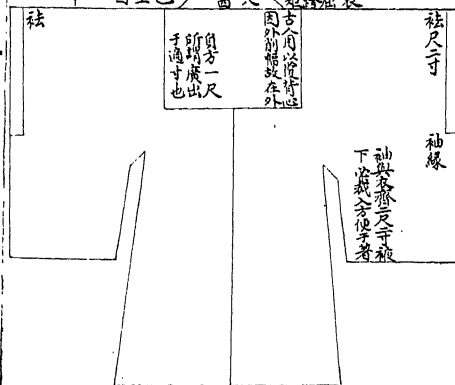 袪尺二寸
袖緣
袖與衣齊二尺二寸腋
下必裁入方便于著
古人用以背心
因外削幅故在外
負方一尺
所謂廣出
于適寸也
袪